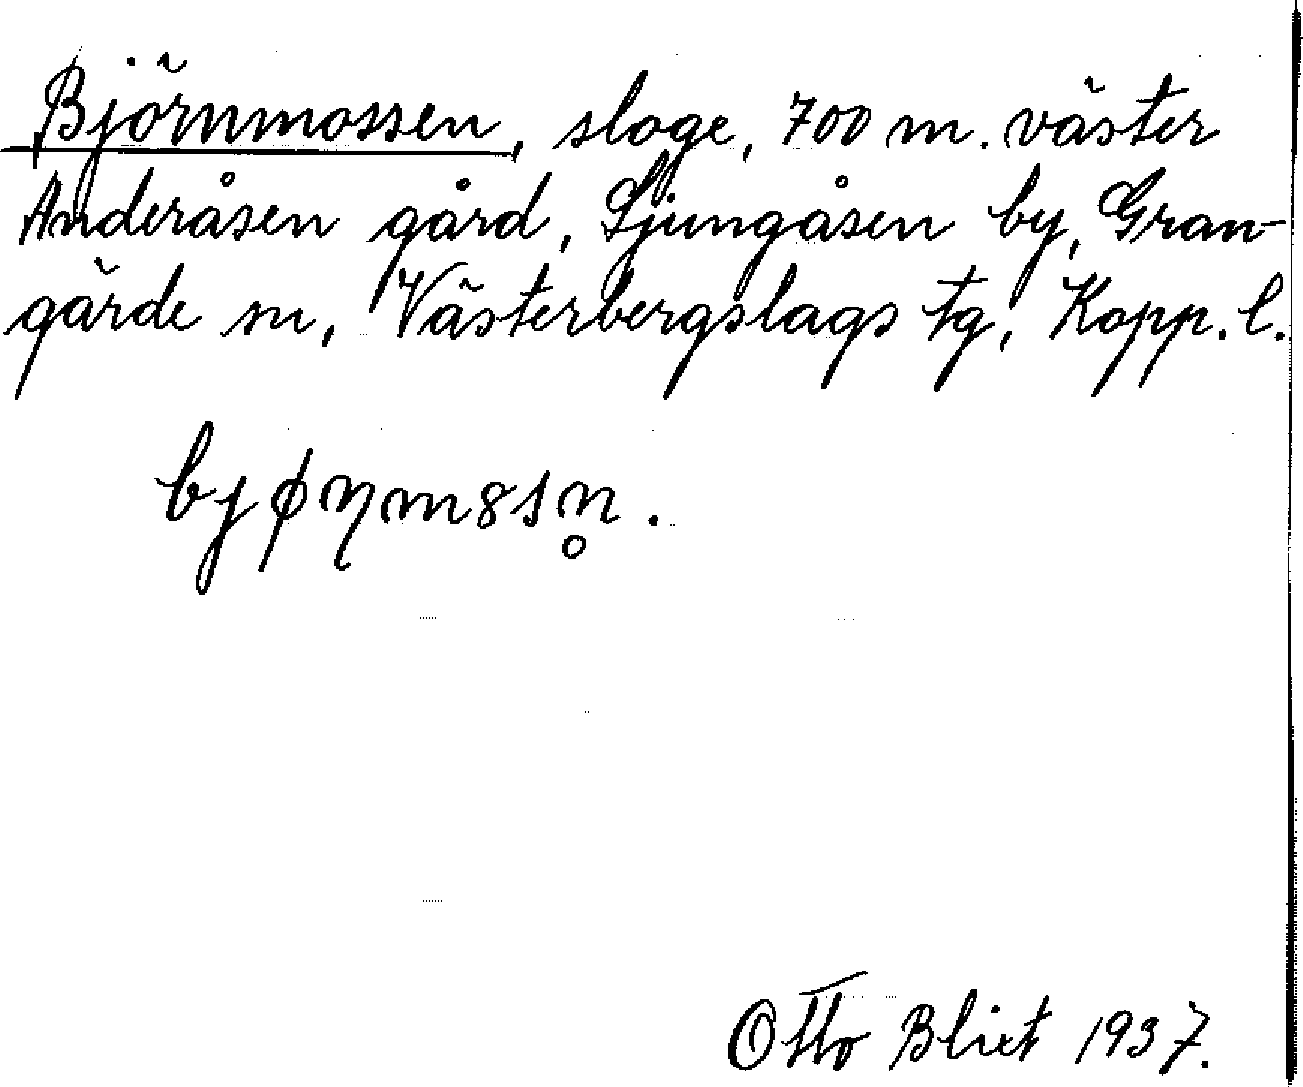 Björnmossen, sloge, 700 m. väster
Anderåsen gård, Ljungåsen by, Gran-
gärde sn, Västerbergslags tg, Kopp. l.
bjɸꞃm8sn̥.
Otto Blixt 1937.